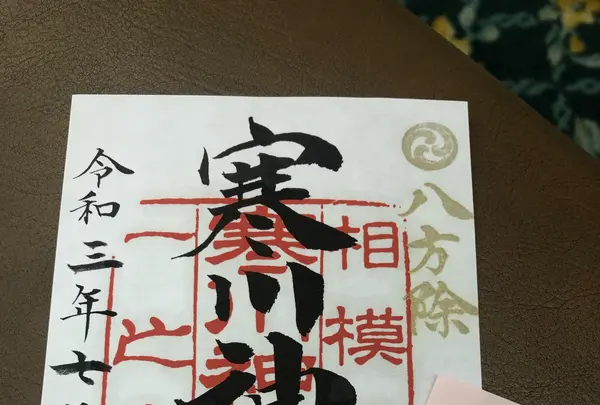 八方除
相模
寒川神
寒川神
一
令和三年七